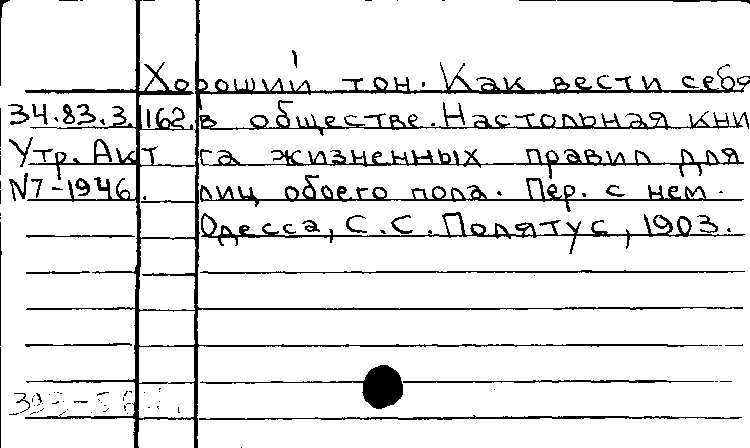 Хороший тон. Как вести себя
34.83.3.162. в обществе. Настольная кни
Утр. Акт га жизненных правил для
N7-1946. лиц обоего пола. Пер. с нем.
Одесса, С.С. Полятус, 1903.